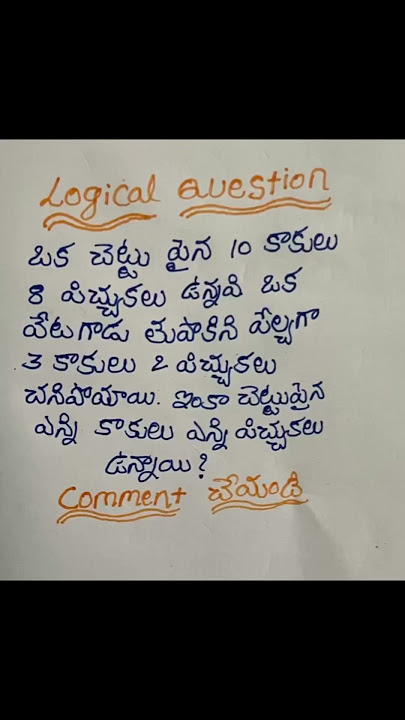 Logical Question
ఒక చెట్టు పైన 10 కాకులు
8 పిచ్చుకలు ఉన్నవి ఒక
వేటగాడు తుపాకిని పేల్చగా
3 కాకులు 2 పిచ్చుకలు
చనిపోయాయి. ఇంకా చెట్టుపైన
ఎన్ని కాకులు ఎన్ని పిచ్చుకలు
ఉన్నాయి?
Comment చేయండి